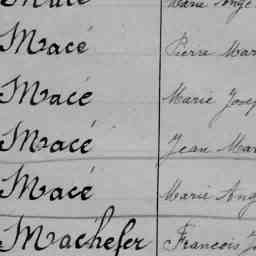 Macé Marie Ange
Macé Pierre Mar
Macé Marie Josep
Macé Jean Mar
Macé Marie Ang
Machefer François J